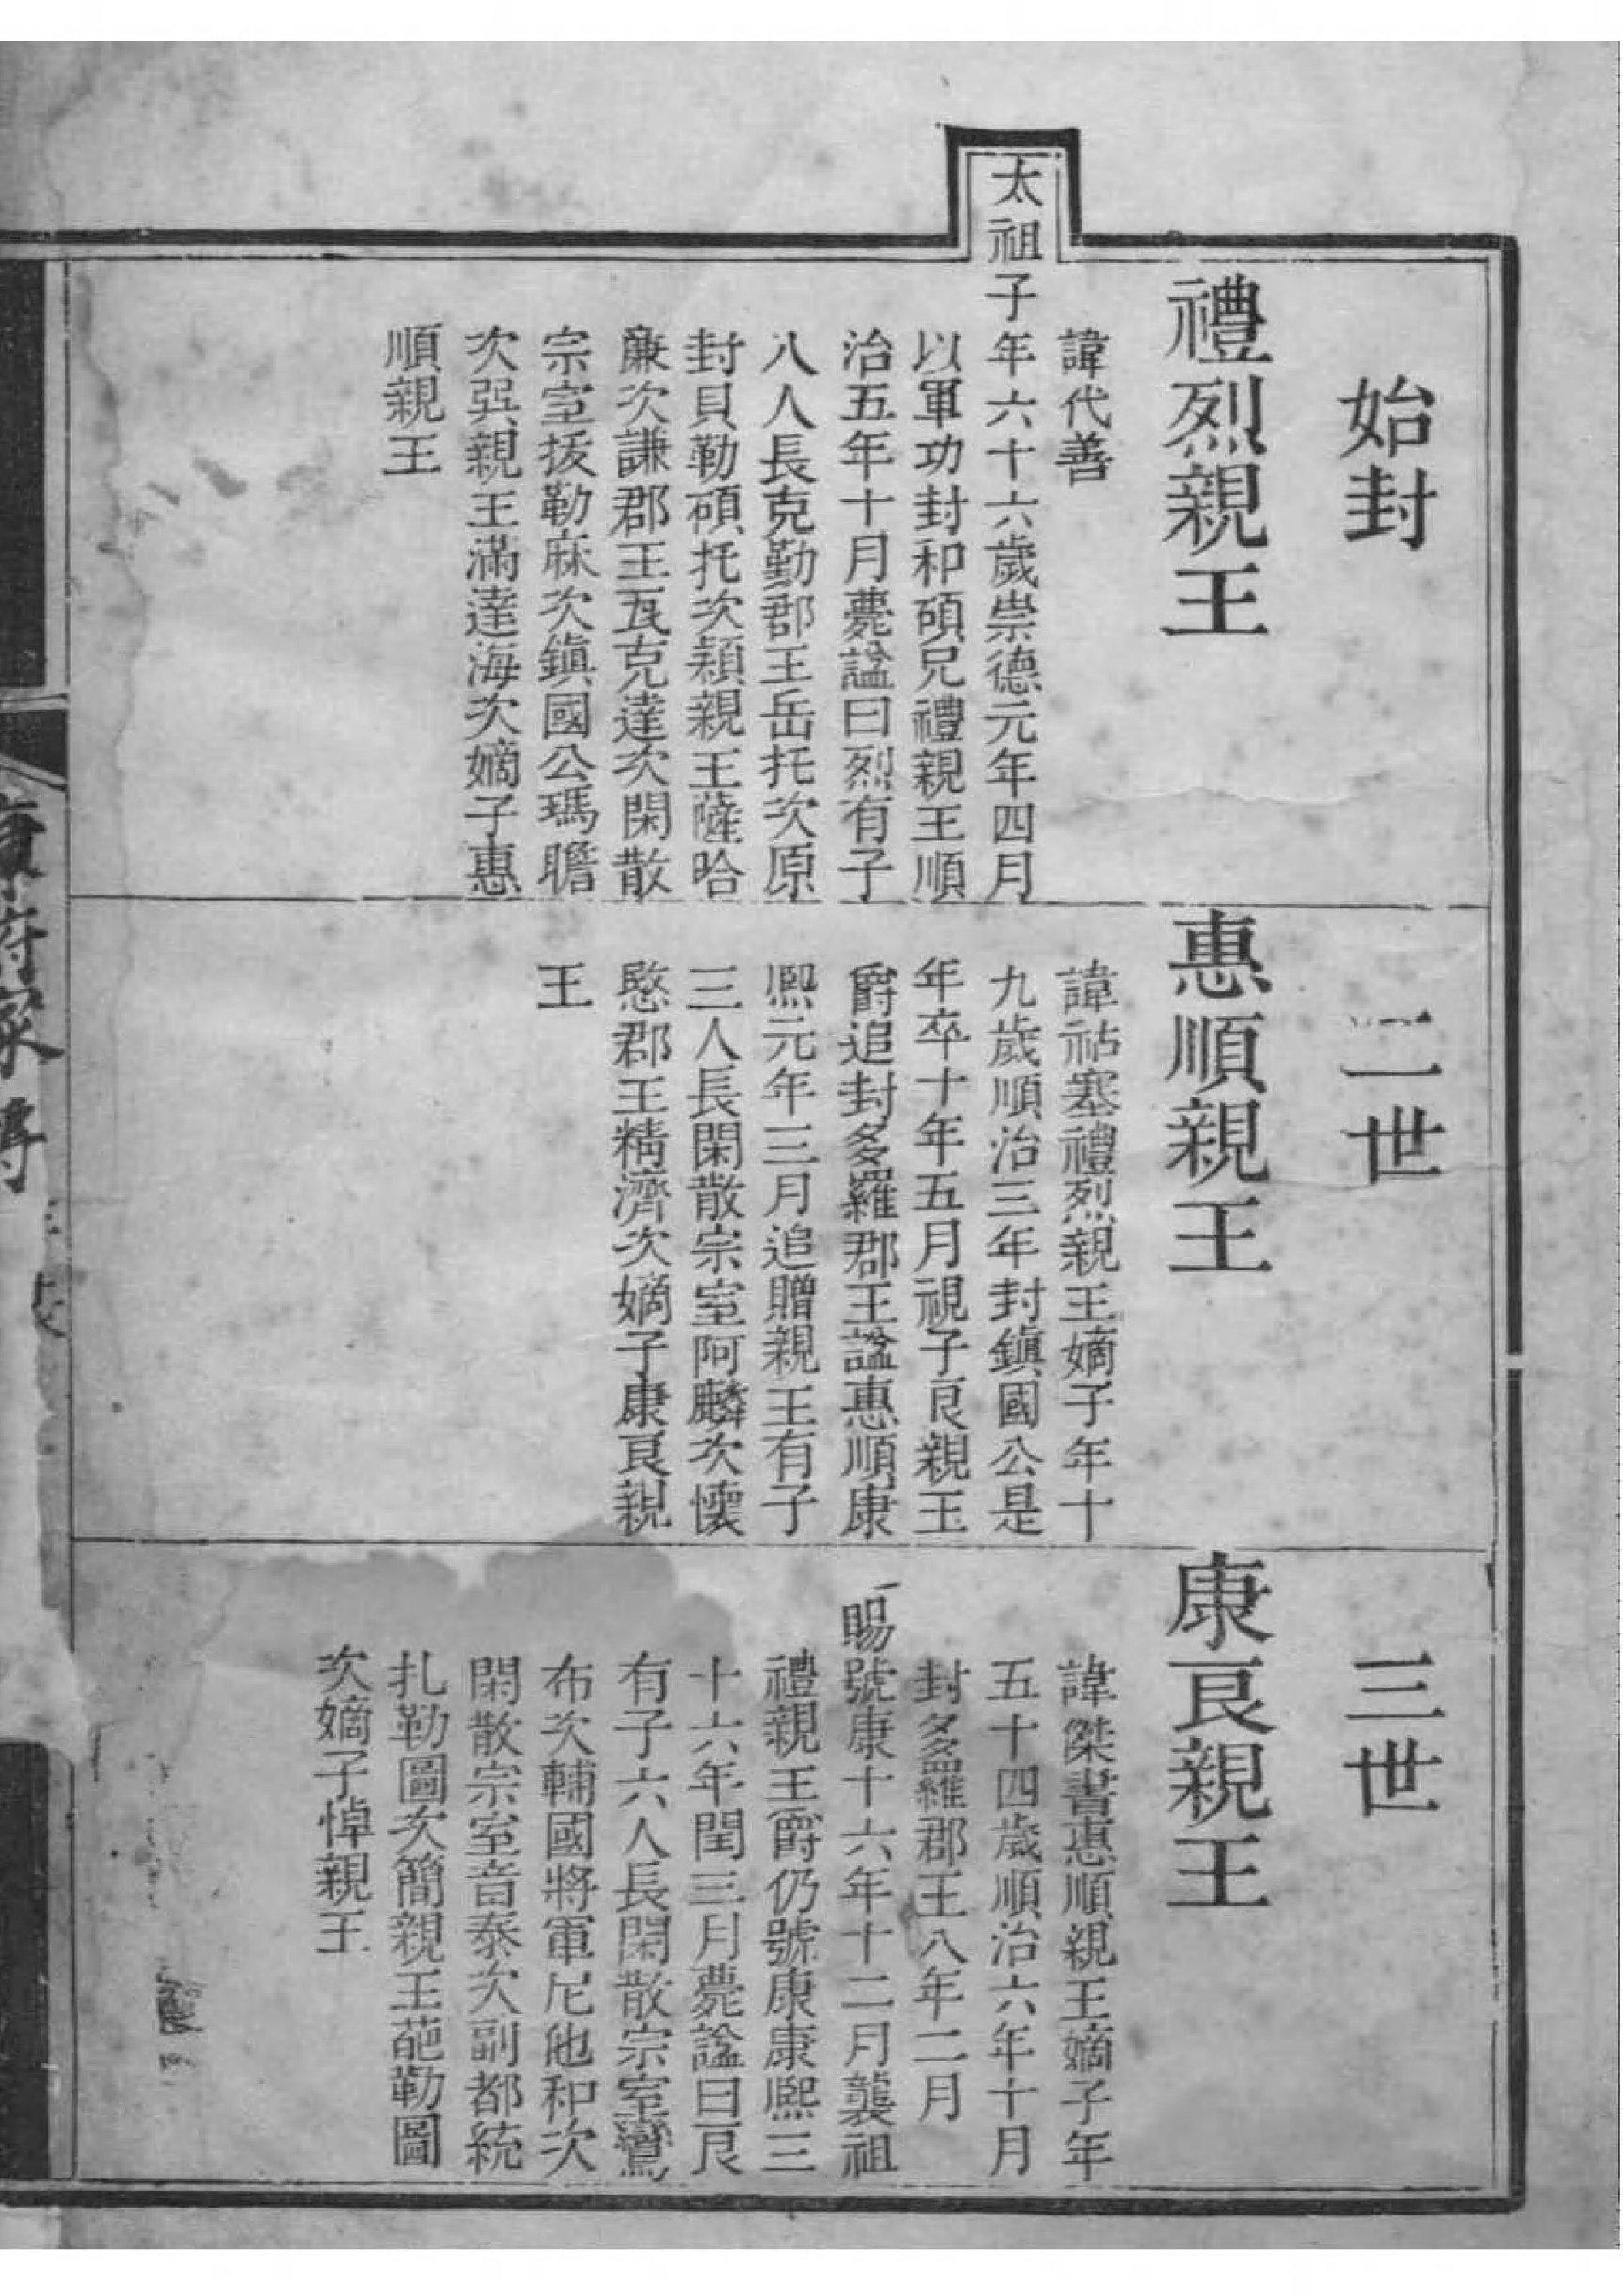 始封
禮烈親王
諱代善
太祖子年六十六歲崇德元年四月
以軍功封和碩兄禮親王順
治五年十月薨諡曰烈有子
八人長克勤郡王岳托次原
封貝勒碩托次頴親王薩哈
廉次謙郡王瓦克達次閑散
宗室拔勒麻次鎮國公瑪瞻
次巽親王滿達海次嫡子惠
順親王
二世
惠順親王
諱祜塞禮烈親王嫡子年十
九歲順治三年封鎮國公是
年卒十年五月視子良親王
爵追封多羅郡王諡惠順康
熙元年三月追贈親王有子
三人長閑散宗室阿麟次懷
愍郡王精濟次嫡子康良親
王
三世
康良親王
諱傑書惠順親王嫡子年
五十四歲順治六年十月
封多羅郡王八年二月
賜號康十六年十二月襲祖
禮親王爵仍號康康熙三
十六年閏三月薨諡曰良
有子六人長閑散宗室鸞
布次輔國將軍尼他和次
閑散宗室音泰次副都統
扎勒圖次簡親王葩勒圖
次嫡子悼親王
康府家傳